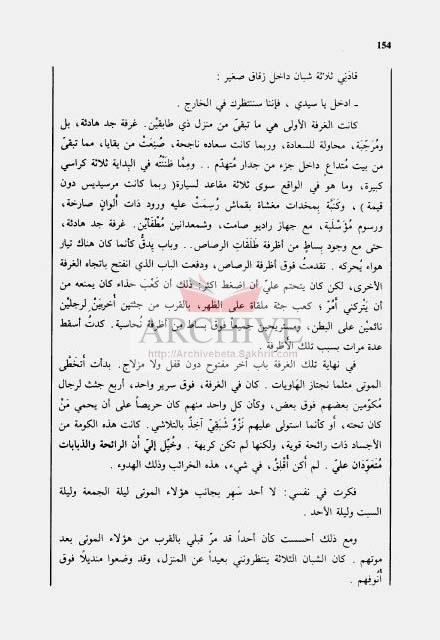 154
قادني ثلاثة شبان داخل زقاق صغير :
ـ ادخل يا سيدي ، فإننا سننتظرك في الخارج .
كانت الغرفة الأولى هي ما تبقىٰ من منزل ذي طابقيْن. غرفة جد هادئة، بل
ومُرحِّبَة، محاولة للسعادة، وربما كانت سعاده ناجحة، صُنِعَتْ من بقايا، مما تبقىٰ
من بيت مُتداعٍ داخل جزء من جدار مُتهدّم . . ومِمَّا ظَنَنْتُه في البِداية ثلاثة كراسي
كبيرة، وما هو في الواقع سوى ثلاثة مقاعد لسيارة( ربما كانت مرسيديس دون
قيمة ) ، وكَنَبَة بِمخدات مغشاة بقماش رُسِمتْ عليه ورود ذات ألوانٍ صارخة،
ورسوم مُؤَسْلَبة، مع جهاز راديو صامت، وشمعدانين مُطْفَأَيْن. غرفة جد هادئة،
حتى مع وجود بِساطٍ من أظرفة طَلَقَاتِ الرصاص.. وباب يدقُّ كأنما كان هناك تيار
هواء يُحركه . تقدمتُ فوق أظرفة الرصاص، ودفعت الباب الذي انفتح باتجاه الغرفة
الأخرى، لكن كان يتحتم عليّ أن اضغط اكثر: ذلك أن كَعْبَ حذاء كان يمنعه من
أن يَتْركني أمُرّ ؛ كعب جثة ملقاة على الظهر، بالقرب من جثتين أخريَيْن لِرجليْن
نائميْن على البطن، ومستريحين جميعاً فوق بساط من أظرفة نُحاسية . كدتُ أسقط
عدة مرات بسبب تلك الأظرفة .
ARCHIVE
http://Archivebeta.Sakhrit.com
في نهاية تلك الغرفة باب آخر مفتوح دون قفل ولا مزلاج. بدأت أتخطّى
الموتى مثلما نجتاز الهَاويات . كان في الغرفة، فوق سرير واحد، أربع جثث لرجال
مُكَوَّمين بعضهم فوق بعض، وكأن كل واحد منهم كان حريصاً على أن يحمي مَنْ
كان تحته، أو كأنما استولى عليهم نَزْوٌ شَبَقِيّ آخِذٌ بالتلاشي. كانت هذه الكومة من
الأجساد ذات رائحة قوية، ولكنها لم تكن كريهة . وخُيِّل إليّ أن الرائحة والذبابات
مُتَعَوِّدَان عليّ . لم أكن أُقْلِقُ، في شيء، هذه الخرائب وذلك الهدوء .
فكرت في نفسي: لا أحد سَهر بجانب هؤلاء الموتى ليلة الجمعة وليلة
السبت وليلة الأحد .
ومع ذلك أحسست كأن أحداً قد مرّ قبلي بالقرب من هؤلاء الموتى بعد
موتهم . كان الشبان الثلاثة ينتظرونني بعيداً عن المنزل، وقد وضعوا منديلاً فوق
أنُوفهم .